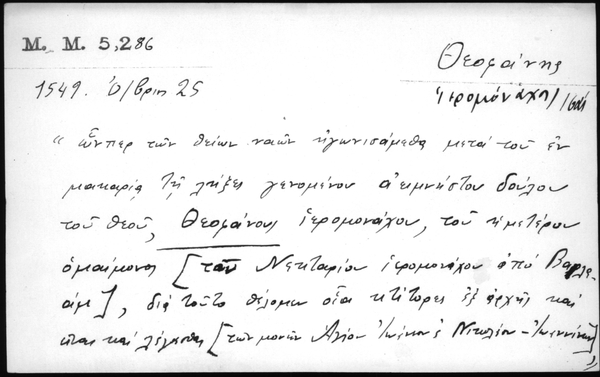 M. M. 5,286
Θεοφάνης
1549. Ὀ/βρίῃ 25
ἱερομόναχος
" ὧνπερ τῶν θείων ναῶν ἠγωνισάμεθα μετά τοῦ ἐν
μακαρίᾳ τῇ λήξει γενομένου ἀειμνήστου δούλου
τοῦ θεοῦ, Θεοφάνους ἱερομονάχου, τοῦ ἡμετέρου
ὁμαίμονος [τοῦ Νεκταρίου ἱερομονάχου ἀπό Βαρλα-
άμ], διά τοῦτο θέλομεν οἷα κτίτορες ἐξ ἀρχῆς καί
εἶναι καί λέγεσθαι [τῶν μονῶν Ἁγίου Νικολάου - Ἰωαννίνων]